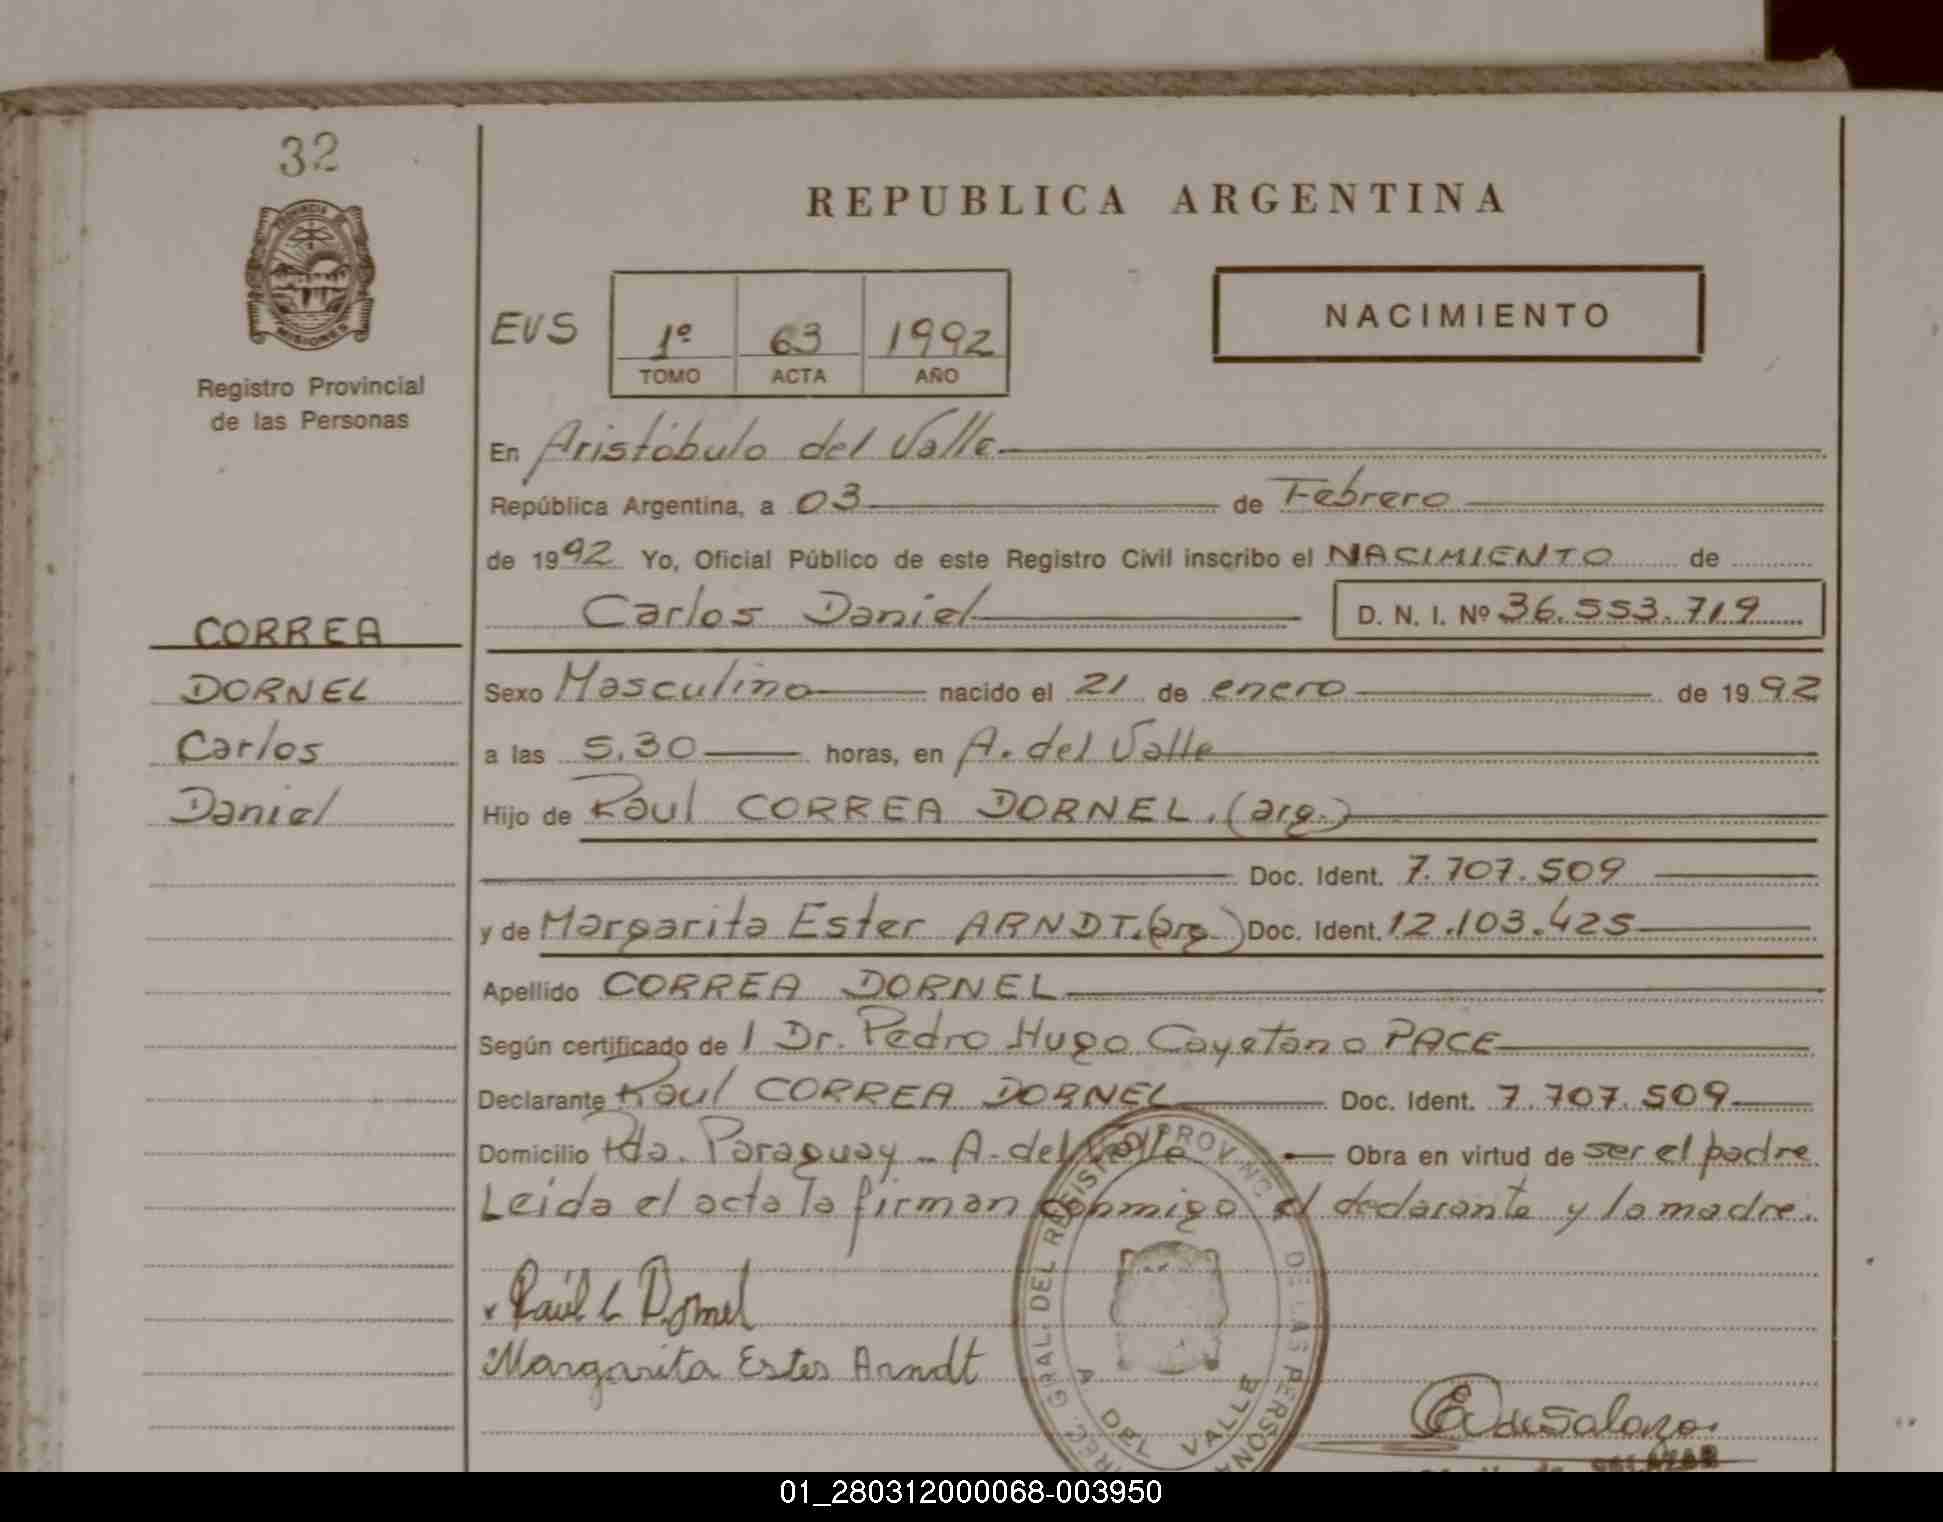 32
PROVINCIA DE
MISIONES
Registro Provincial
de las Personas
REPUBLICA ARGENTINA
EVS
1º 63 1992
TOMO ACTA AÑO
NACIMIENTO
En Aristóbulo del Valle
República Argentina, a 03 de Febrero
de 1992 Yo, Oficial Público de este Registro Civil inscribo el NACIMIENTO de
Carlos Daniel D. N. I. Nº 36.553.719
CORREA
DORNEL
Carlos
Daniel
Sexo Masculino nacido el 21 de enero de 1992
a las 5.30 horas, en A. del Valle
Hijo de Raul CORREA DORNEL. (arg.)
Doc. Ident. 7.707.509
y de Margarita Ester ARNDT. (arg.) Doc. Ident. 12.103.425
Apellido CORREA DORNEL
Según certificado de l Dr. Pedro Hugo Cayetano PACE
Declarante Raul CORREA DORNEL Doc. Ident. 7.707.509
Domicilio Pda. Paraguay - A. del Valle Obra en virtud de ser el padre
Leida el acta la firman conmigo el declarante y la madre.
Raúl C Dornel
Margarita Ester Arndt
GRAL. DEL REGISTRO PROVINC. DE LAS PERSONAS
A. DEL VALLE
de Salazar
SALAZAR
01_280312000068-003950